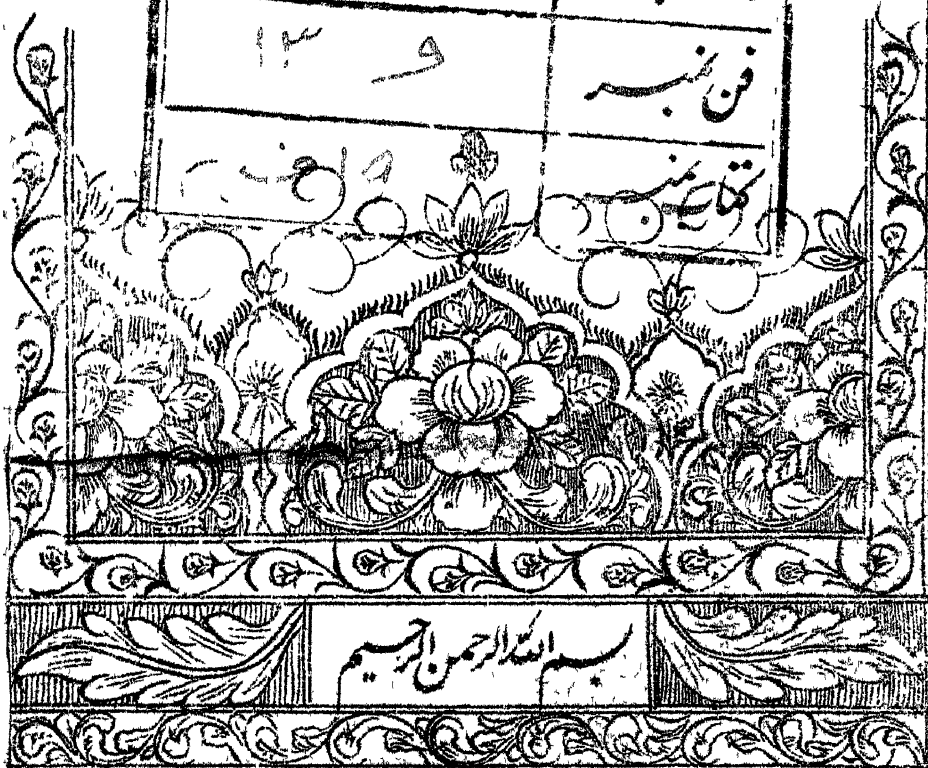 فن نمبر و ۱۳
کتاب نمبر
بسم الله الرحمن الرحيم